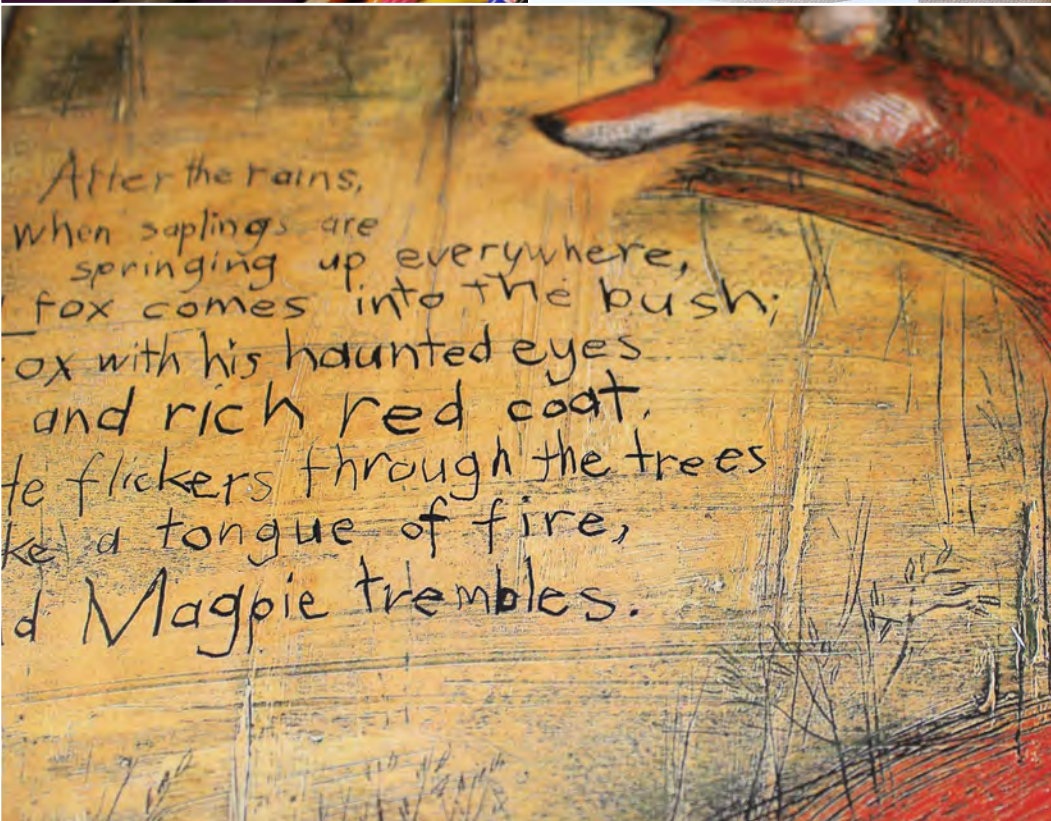 After the rains,
when saplings are
springing up everywhere,
fox comes into the bush;
ox with his haunted eyes
and rich red coat.
He flickers through the trees
ke a tongue of fire,
d Magpie trembles.